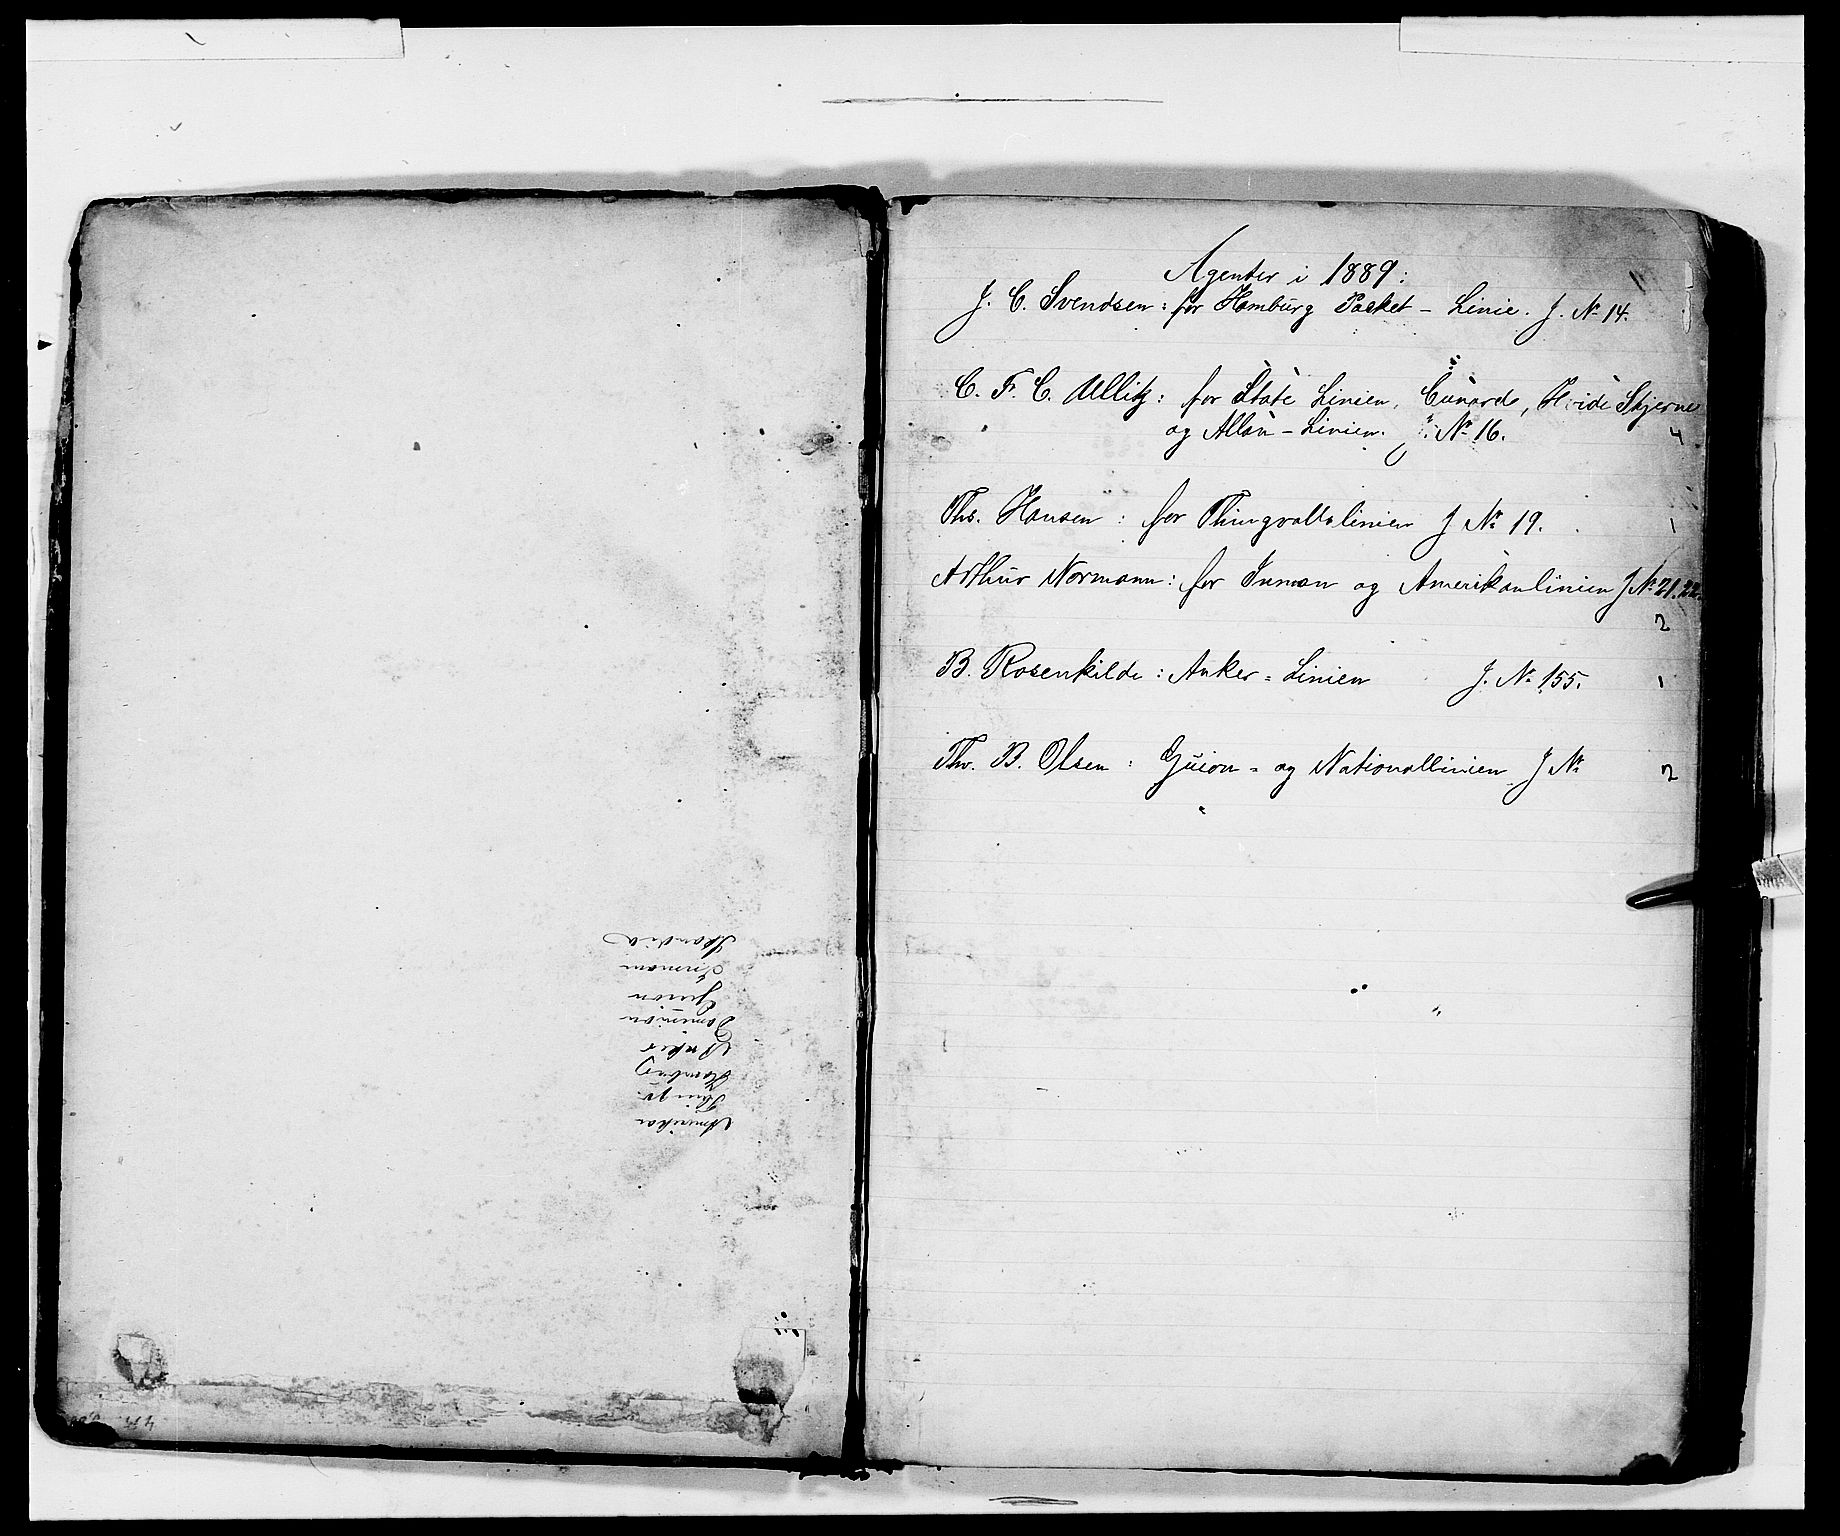 Amerika
Thingv.
Hamburg
Anker
Dominion
Guion
Inman
Skandia
Agenter i 1889:
J. C. Svendsen: for Hamburg Packet - Linie. J. No 14.
C. F. C. Ullitz: for State Linien, Cunard, Hvide Stjerne
og Allan-Linien. J. No 16. 4
Ths. Hansen: for Thingvallalinien J No 19. 1
Arthur Normann: for Inman og Amerikanlinien J No 21.22.
2
B. Rosenkilde: Anker=Linien J. No 155. 1
Thv. B. Olsen: Guion= og Nationallinien J No 2